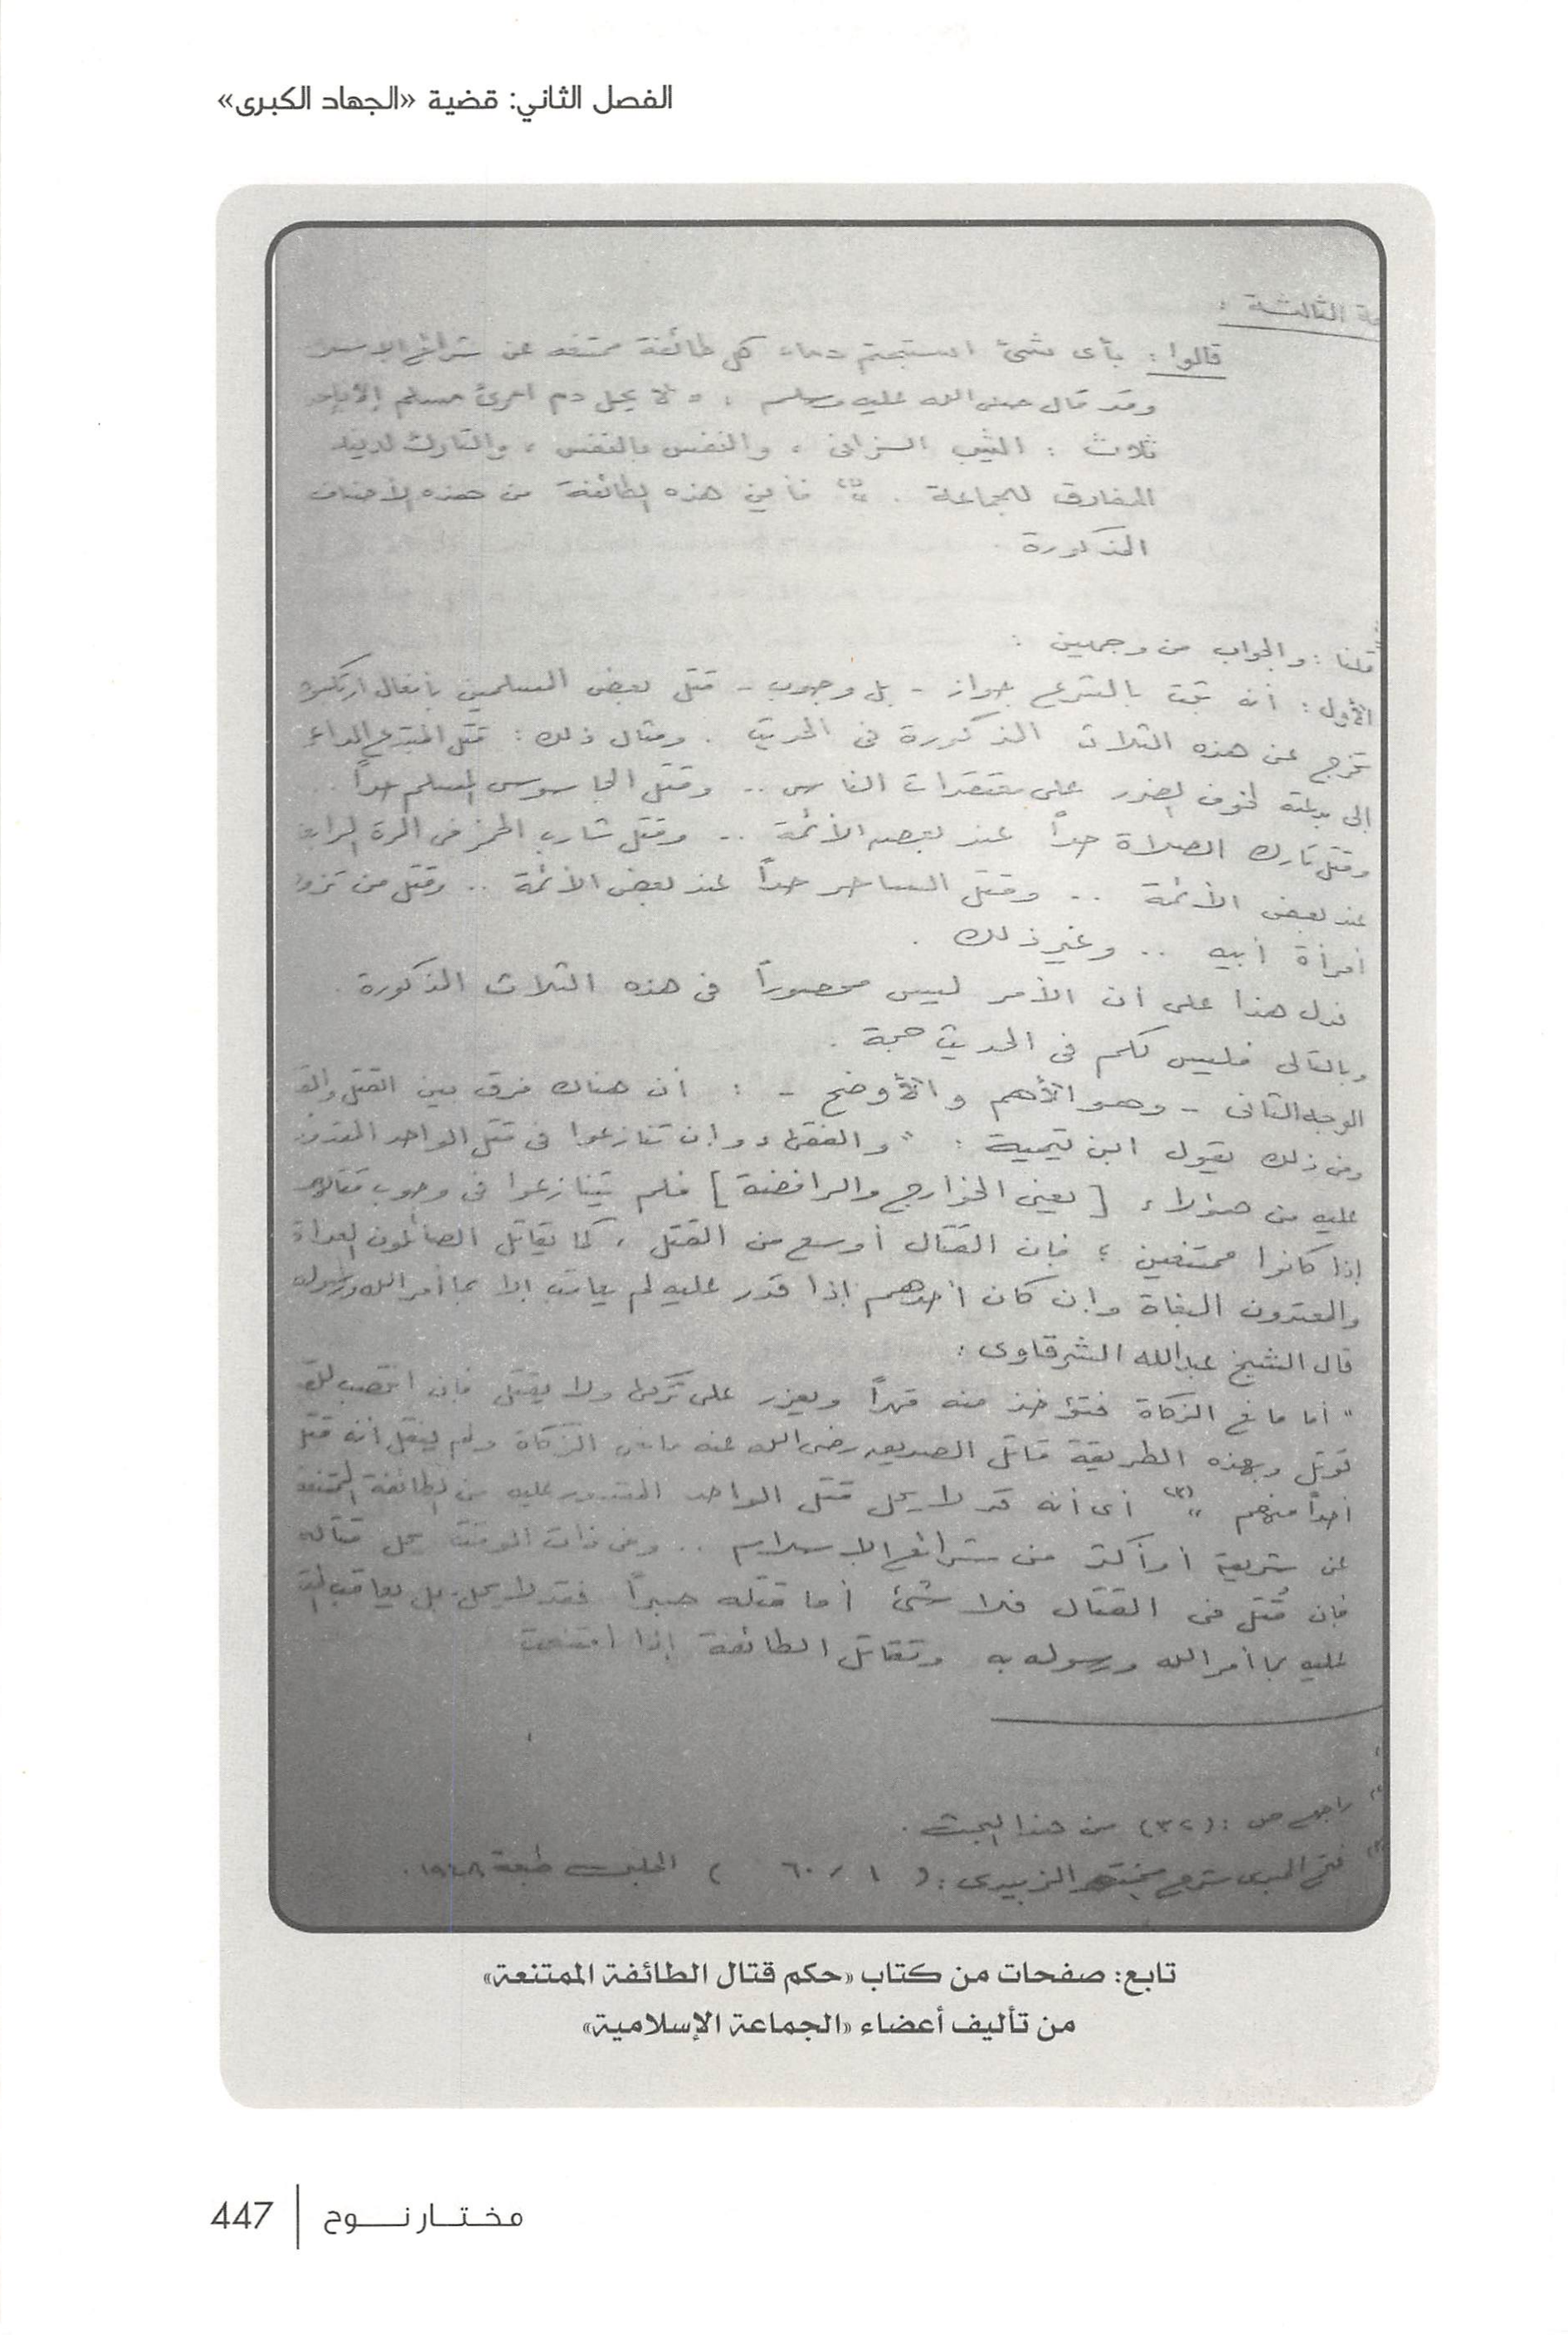 الفصل الثاني: قضية «الجهاد الكبرى»
الثالثة :
قالوا : بأى شئ استبحتم دماء كل طائفة ممتنعة عن شرائع الإسلام
وقد قال صلى الله عليه وسلم : " لا يحل دم امرئ مسلم إلا بإحدى
ثلاث : الثيب الزانى ، والنفس بالنفس ، والتارك لدينه
المفارق للجماعة . " فأين هذه الطائفة من هذه الأصناف
المذكورة .
قلنا : والجواب من وجهين :
الأول : أنه ثبت بالشرع جواز - بل وجوب - قتل بعض المسلمين بأفعال ارتكبوها
تخرج عن هذه الثلاث المذكورة فى الحديث . ومثال ذلك : قتل المبتدع الداعى
إلى بدعته لخوف الضرر على معتقدات الناس .. وقتل الجاسوس المسلم حداً ..
وقتل تارك الصلاة حداً عند بعض الأئمة .. وقتل شارب الخمر فى المرة الرابعة
عند بعض الأئمة .. وقتل الساحر حداً عند بعض الأئمة .. وقتل من تزوج
امرأة أبيه .. وغير ذلك .
فدل هذا على أن الأمر ليس محصوراً فى هذه الثلاث المذكورة .
وبالتالى فليس لكم فى الحديث حجة .
الوجه الثانى - وهو الأهم والأوضح - : أن هناك فرق بين القتل والقتال
وفى ذلك يقول ابن تيمية : " والفقهاء وإن تنازعوا فى قتل الواحد المقدور
عليه من هؤلاء [ يعنى الخوارج والرافضة ] فلم يتنازعوا فى وجوب قتالهم
إذا كانوا ممتنعين ؛ فإن القتال أوسع من القتل ، كما يقاتل الصائلون العداة
والمعتدون البغاة وإن كان أحدهم إذا قدر عليه لم يعاقب إلا بما أمر الله ورسوله
قال الشيخ عبدالله الشرقاوى :
" أما مانع الزكاة فتؤخذ منه قهراً ويعزر على تركها ولا يقتل فإن انتصب للقتال
قوتل وبهذه الطريقة قاتل الصديق رضى الله عنه مانعى الزكاة ولم ينقل أنه قتل
أحداً منهم " (٣) أى أنه قد لا يحل قتل الواحد المقدور عليه من الطائفة الممتنعة
عن شريعة أو أكثر من شرائع الإسلام .. وفى ذات الوقت يحل قتاله
فإن قُتل فى القتال فلا شئ أما قتله صبراً فقد لا يحل بل يعاقب
عليه بما أمر الله ورسوله به وتقاتل الطائفة إذا امتنعت
راجع ص : (٣٢) من هذا البحث .
فتح المبدى شرح مختصر الزبيدى : ( ١ / ٦٠ ) الحلبى طبعة
تابع: صفحات من كتاب «حكم قتال الطائفة الممتنعة»
من تأليف أعضاء «الجماعة الإسلامية»
مختار نوح | 447